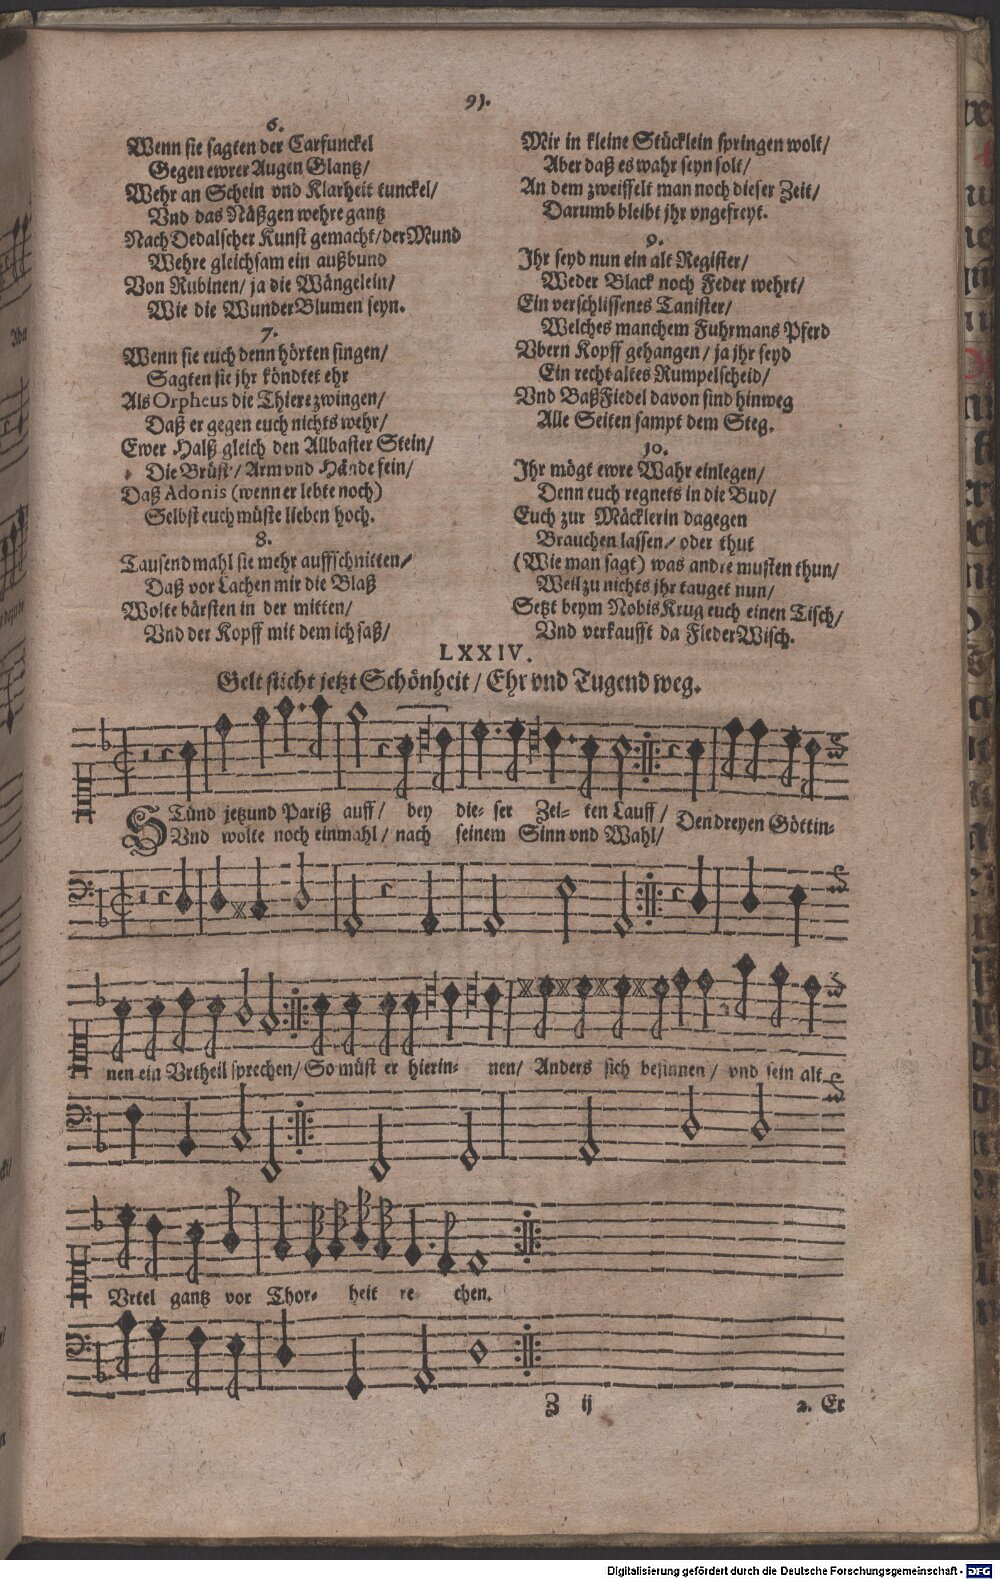 91.
6.
Wenn sie sagten der Carfunckel
Gegen ewrer Augen Glantz/
Wehr an Schein vnd Klarheit tunckel/
Vnd das Näßgen wehre gantz
Nach Dedalscher Kunst gemacht/der Mund
Wehre gleichsam ein außbund
Von Rubinen/ ja die Wängelein/
Wie die WunderBlumen seyn.
7.
Wenn sie euch denn hörten singen/
Sagten sie jhr köndtet ehr
Als Orpheus die Thiere zwingen/
Daß er gegen euch nichts wehr/
Ewer Halß gleich den Allbaster Stein/
Die Brüst/ Arm vnd Hände fein/
Daß Adonis (wenn er lebte noch)
Selbst euch müste lieben hoch.
8.
Tausendmahl sie mehr auffschnitten/
Daß vor Lachen mir die Blaß
Wolte bärsten in der mitten/
Vnd der Kopff mit dem ich saß/
Mir in kleine Stücklein springen wolt/
Aber daß es wahr seyn solt/
An dem zweiffelt man noch dieser Zeit/
Darumb bleibt jhr vngefreyt.
9.
Ihr seyd nun ein alt Register/
Weder Black noch Feder wehrt/
Ein verschlissenes Tanister/
Welches manchem Fuhrmans Pferd
Vbern Kopff gehangen/ ja jhr seyd
Ein recht altes Rumpelscheid/
Vnd BaßFiedel davon sind hinweg
Alle Seiten sampt dem Steg.
10.
Ihr mögt ewre Wahr einlegen/
Denn euch regnets in die Bud/
Euch zur Mäcklerin dagegen
Brauchen lassen/ oder thut
(Wie man sagt) was andre musten thun/
Weil zu nichts jhr tauget nun/
Setzt beym NobisKrug euch einen Tisch/
Vnd verkaufft da FiederWisch.
LXXIV.
Gelt sticht jetzt Schönheit/ Ehr vnd Tugend weg.
STünd jetzund Pariß auff/ bey die- ser Zei- ten Lauff/ Den dreyen Göttin-
Vnd wolte noch einmahl/ nach seinem Sinn vnd Wahl/
nen ein Vrtheil sprechen/ So müst er hierin- nen/ Anders sich besinnen/ vnd sein alt
Vrtel gantz vor Thor- heit re- chen.
Z ij
2. Er
Digitalisierung gefördert durch die Deutsche Forschungsgemeinschaft - DFG